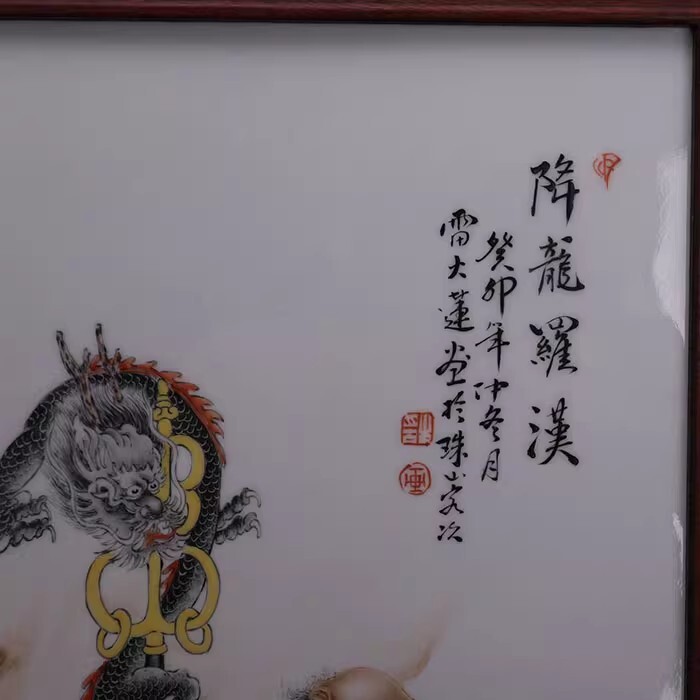 降龍羅漢
癸卯年仲冬月
雷大蓮畫於珠山客次